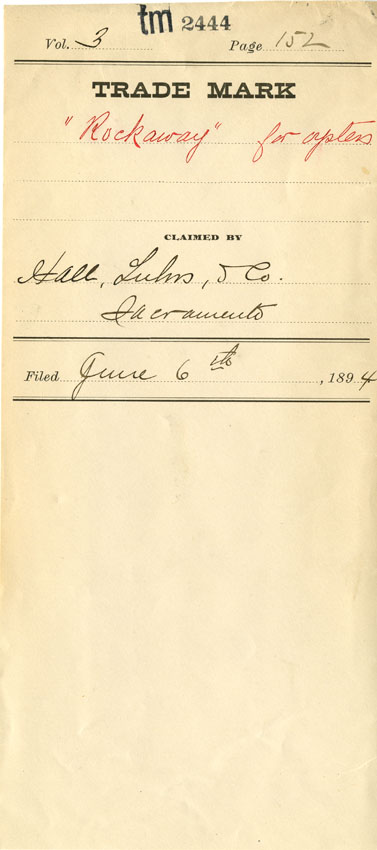 tm 2444
Vol. 3 Page 152
TRADE MARK
"Rockaway" for oysters
CLAIMED BY
Hall, Luhrs, & Co.
Sacramento
Filed June 6th, 1894